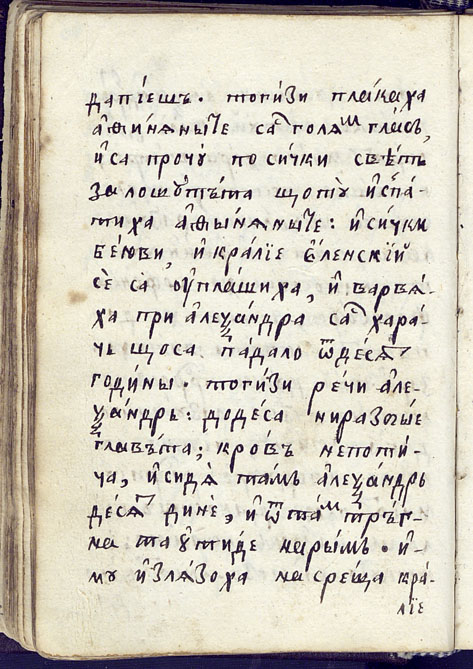 дапі́ешъ. тоги́зи пла́каха
аѳинѧ́ныте саⷭ голѧⷨ гла́съ,
и́са прочꙋ̀ по си́чки свѣ́тъ
за лошѹ́тѫта щотꙋ̀ и҆спа́-
тиха аѳы́нѧныте: и҆си́чки
бе́юви, и҆кра́лїе є҆ленскїй
се са ᲂу҆пла́шиха, и҆варвѧ́-
ха при але́ѯа́ндра саⷭ хара́-
чь щоса па́дало ѿдесѧ́ⷮ
годи́ны. тоги́зи ре́чи але-
ѯа́ндрь: доде́са ниразбы́е
глава́та, кро́въ непоти́-
ча, и҆сидѧ̀ та́мъ але́ѯа́ндрь
де́сѧⷮ дине, и҆ѿта́ⷨ трѣ́г-
на та ѹ҆ти́де нары́мъ. и҆-
му и҆злѧ́зоха на сре́ща кра́-
лїе